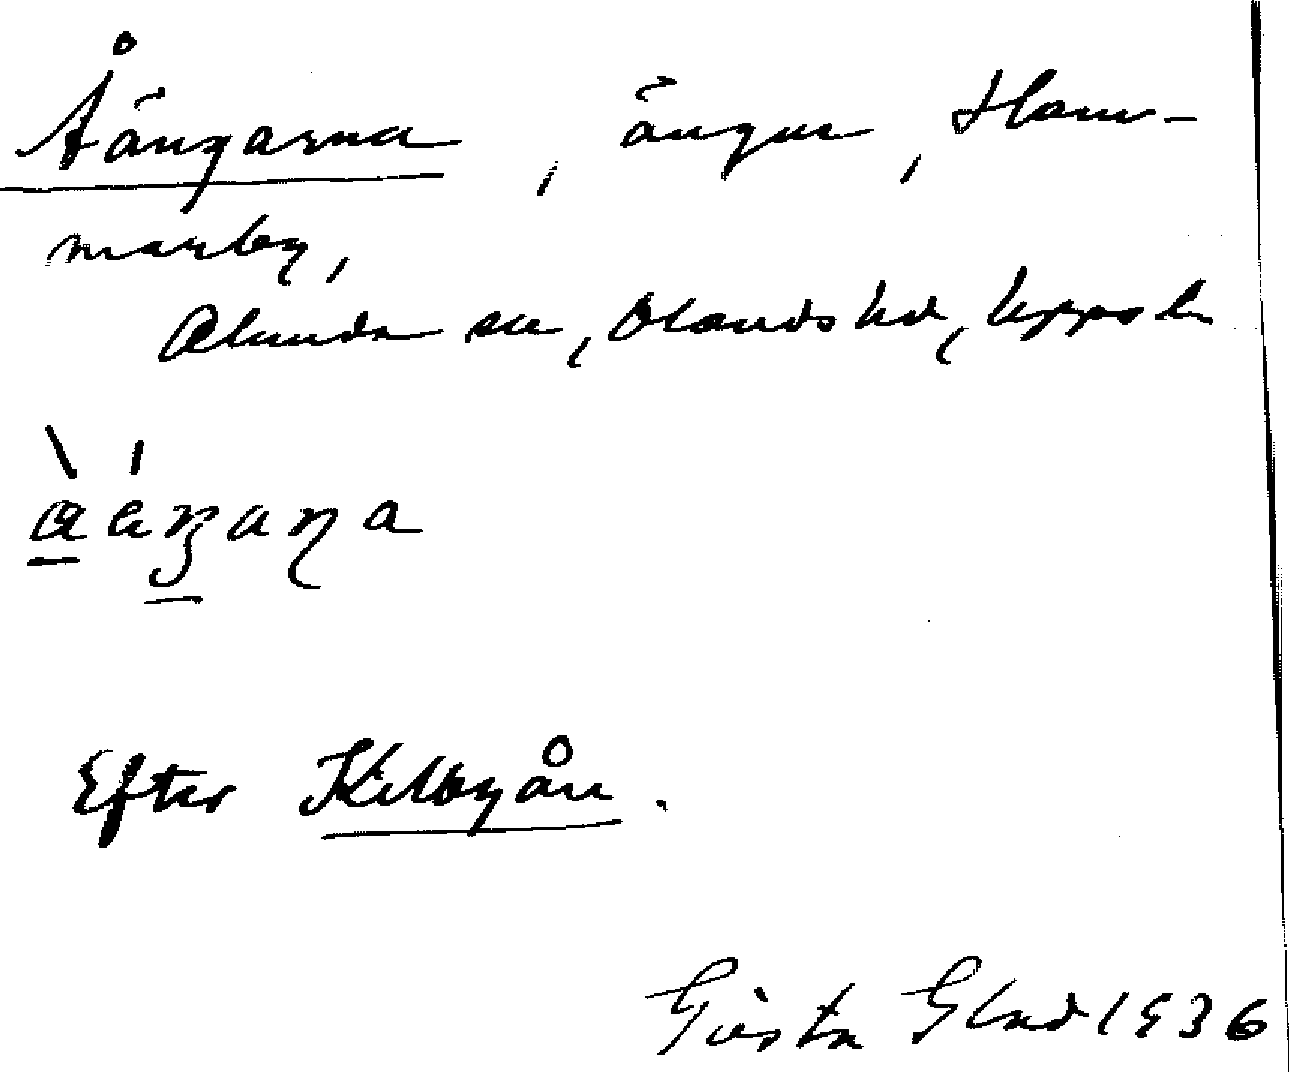 Åängarna, ängar, Ham-
marby,
Alunda sn, Olands hd, Uppsala
Efter Kilbyån.
Gösta Glad 1936